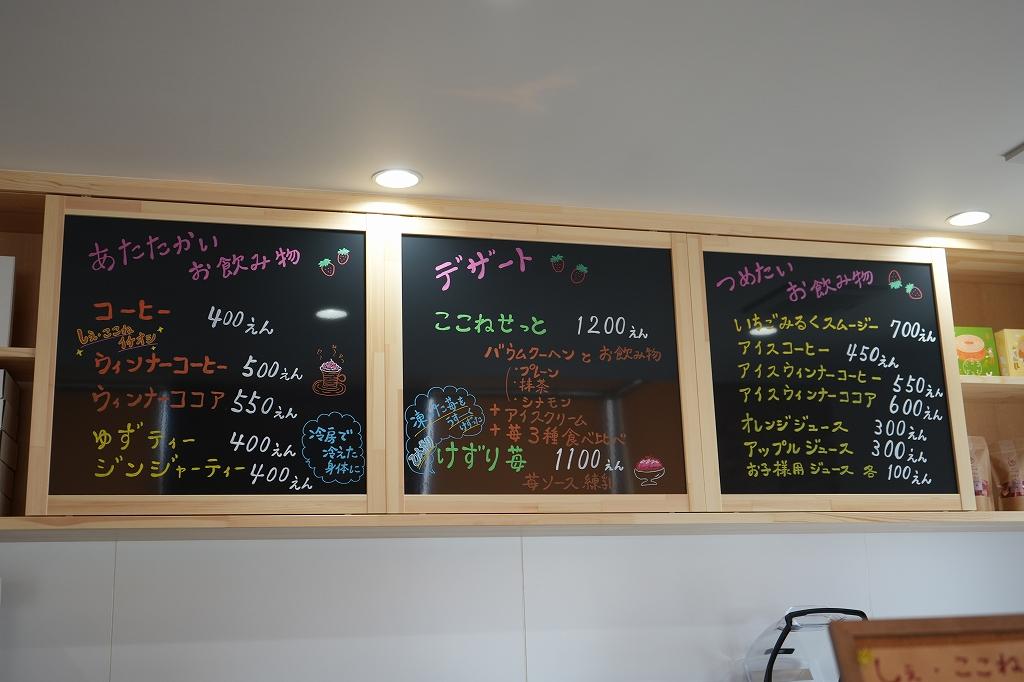 あたたかい
お飲み物
コーヒー 400えん
しぇ・ここね
イチオシ
ウィンナーコーヒー 500えん
ウィンナーココア 550えん
ゆずティー 400えん
ジンジャーティー 400えん
冷房で
冷えた
身体に
デザート
ここねせっと 1200えん
バウムクーヘンとお飲み物
・プレーン
・抹茶
・シナモン
+アイスクリーム
+苺3種食べ比べ
凍った苺を
けずり苺 1100えん
苺ソース練乳
つめたい
お飲み物
いちごみるくスムージー 700えん
アイスコーヒー 450えん
アイスウィンナーコーヒー 550えん
アイスウィンナーココア 600えん
オレンジジュース 300えん
アップルジュース 300えん
お子様用ジュース 各100えん
しぇ・ここね